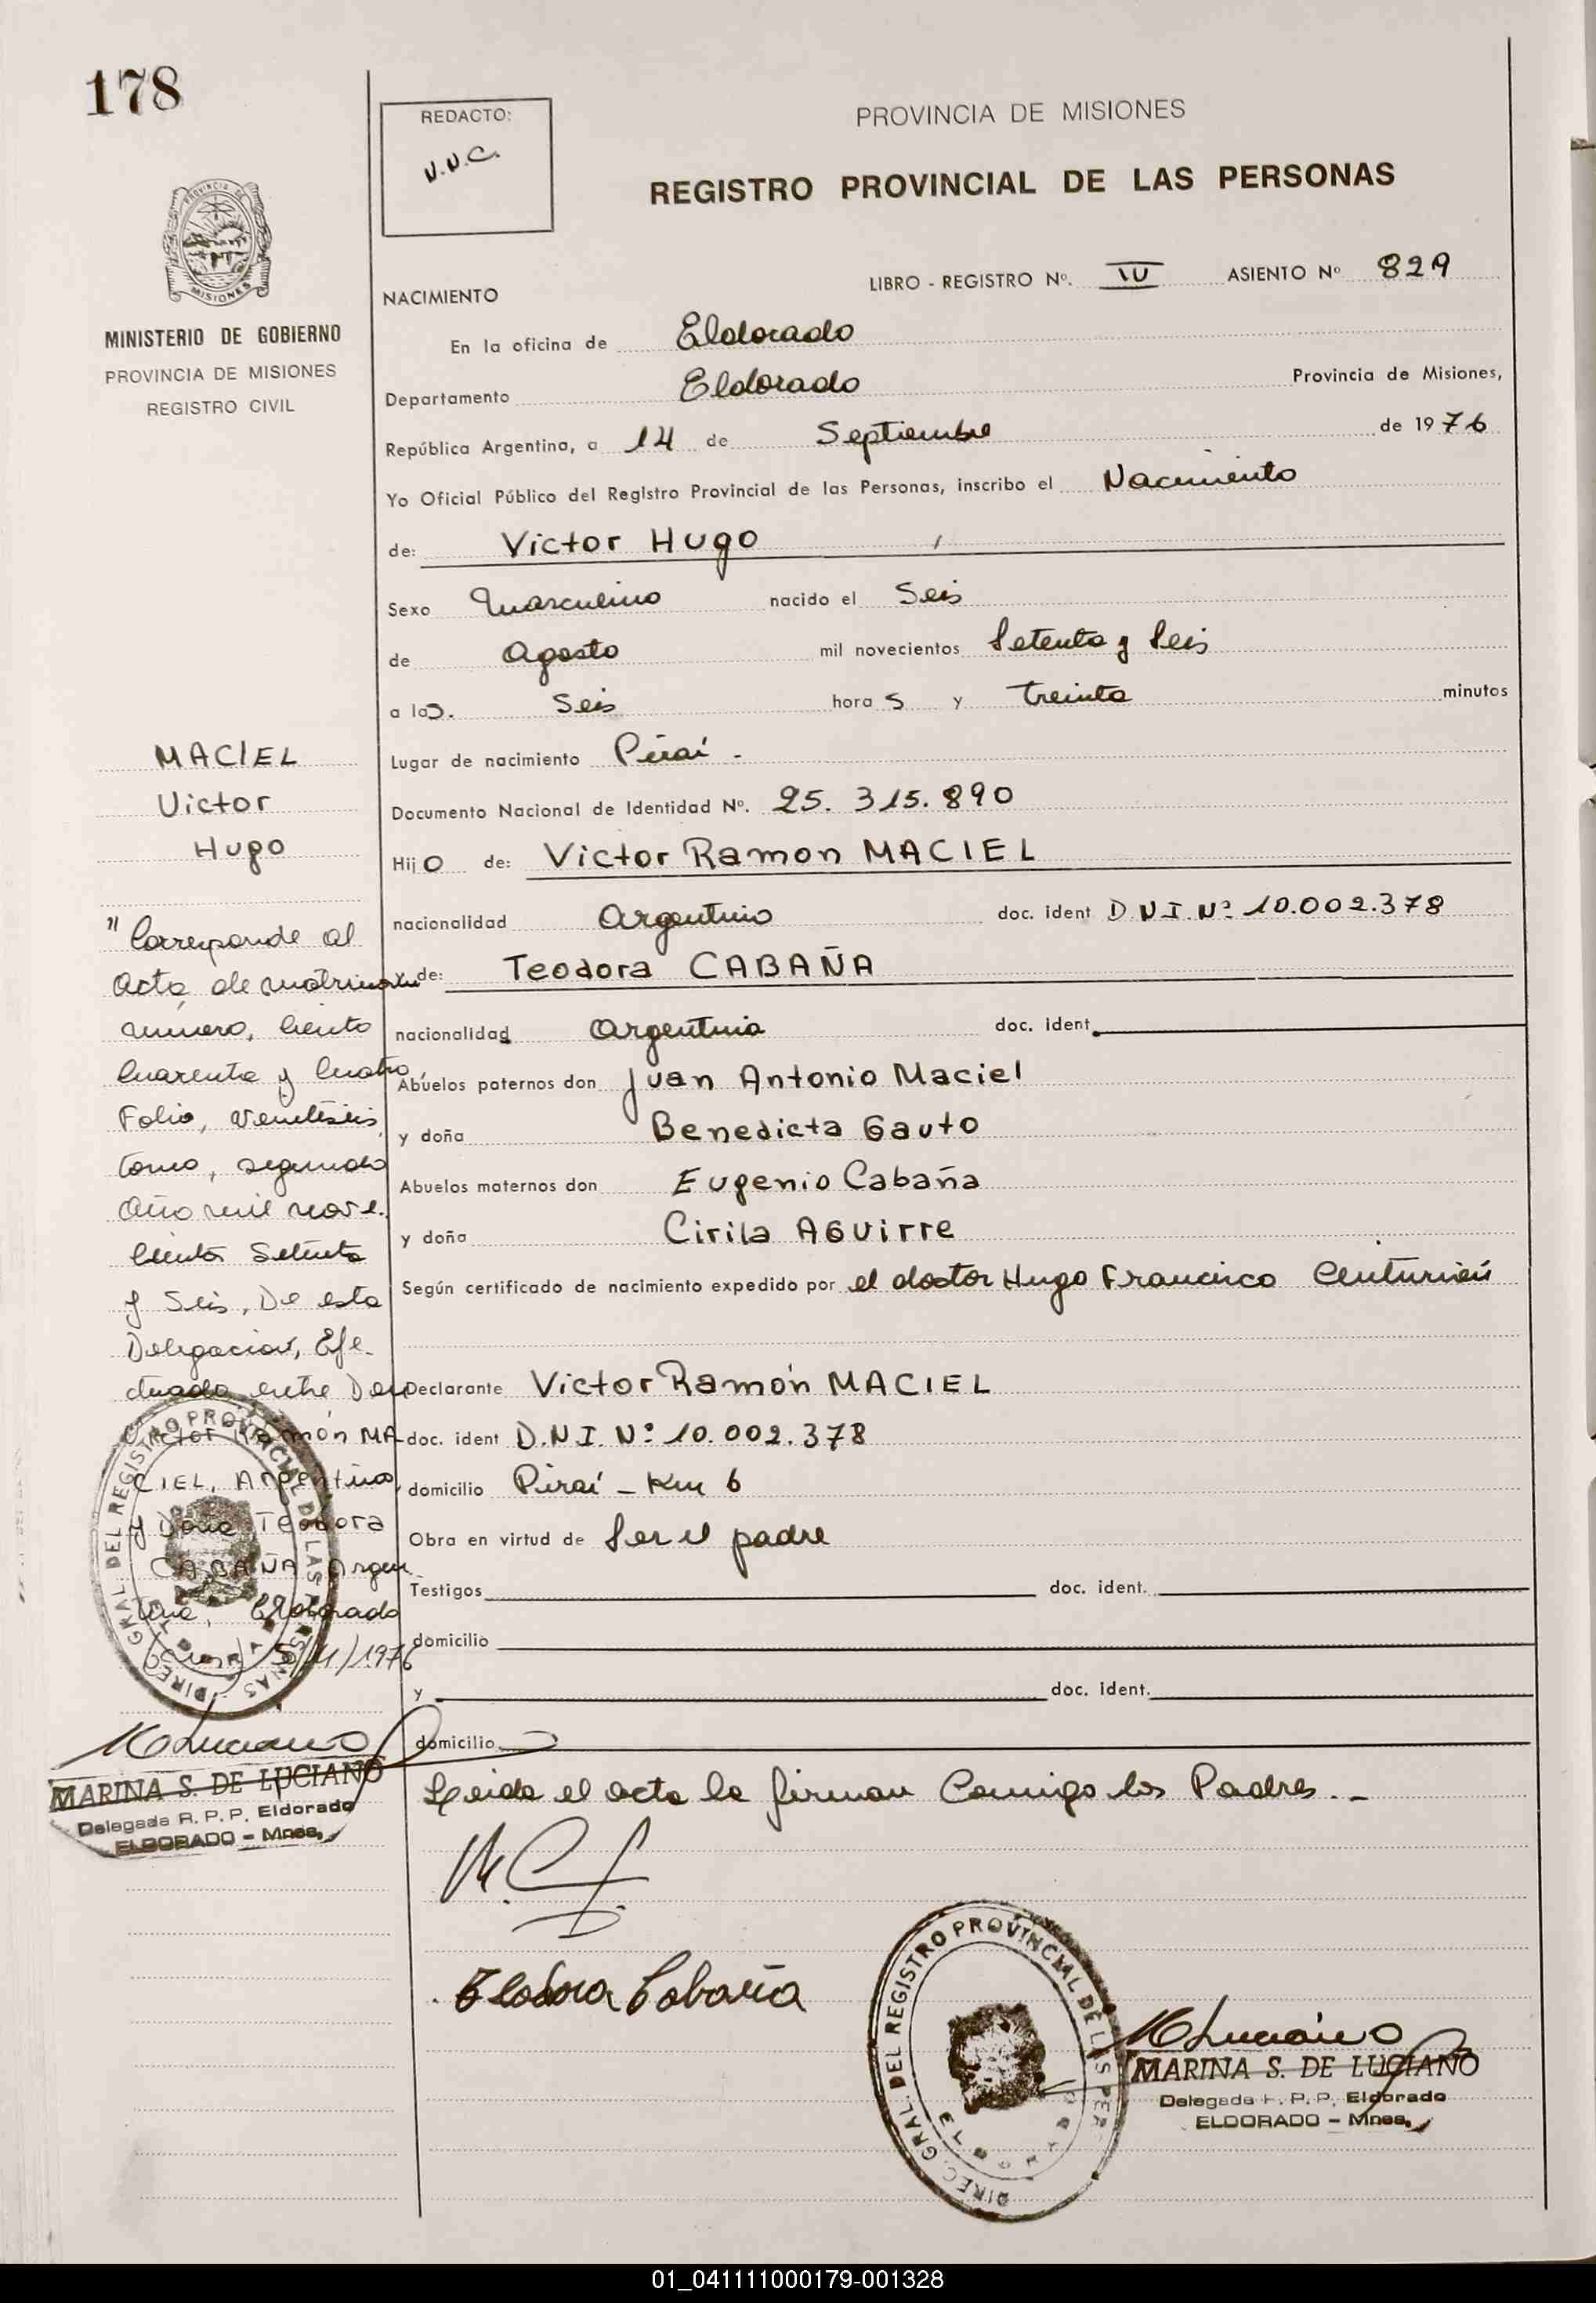 178
REDACTO:
V.V.C.
PROVINCIA DE MISIONES
REGISTRO PROVINCIAL DE LAS PERSONAS
PROVINCIA DE
MISIONES
MINISTERIO DE GOBIERNO
PROVINCIA DE MISIONES
REGISTRO CIVIL
LIBRO - REGISTRO Nº. IV ASIENTO Nº 829
NACIMIENTO
En la oficina de Eldorado
Departamento Eldorado Provincia de Misiones,
República Argentina, a 14 de Septiembre de 1976
Yo Oficial Público del Registro Provincial de las Personas, inscribo el Nacimiento
de: Victor Hugo
Sexo Masculino nacido el Seis
de Agosto mil novecientos Setenta y Seis
a las. Seis hora s y treinta minutos
Lugar de nacimiento Piraí -
Documento Nacional de Identidad Nº. 25.315.890
Hijo de: Victor Ramon MACIEL
nacionalidad Argentino doc. ident D.N.I. Nº 10.002.378
y de: Teodora CABAÑA
nacionalidad Argentina doc. ident.
Abuelos paternos don Juan Antonio Maciel
y doña Benedicta Gauto
Abuelos maternos don Eugenio Cabaña
y doña Cirila AGUirre
Según certificado de nacimiento expedido por el doctor Hugo Francisco Centurión
Declarante Victor Ramón MACIEL
doc. ident D.N.I. Nº 10.002.378
domicilio Piraí - Km 6
Obra en virtud de Ser el padre
Testigos doc. ident.
domicilio
y doc. ident.
domicilio
Leida el acta la firman Comigo los Padres. -
Teodora Cabaña
MACIEL
Victor
Hugo
"Corresponde al
Acta de matrimonio
número, Ciento
Cuarenta y Cuatro,
Folio, Veintiséis,
tomo, segundo
Año mil nove.
cientos Setenta
y Seis, De esta
Delegacion, Efe.
ctuado entre Don
Victor Ramón MA
CIEL, Argentino,
y Doña Teodora
CABAÑA Argen
tina, Eldorado
5/11/1976
DIREC. GRAL. DEL REGISTRO PROVINCIAL DE LAS PERSONAS
ELDORADO
MLuciano
MARINA S. DE LUCIANO
Delegada R. P. P. Eldorado
ELDORADO - Mnes.
DIREC. GRAL. DEL REGISTRO PROVINCIAL DE LAS PER
ELDORADO
MLuciano
MARINA S. DE LUCIANO
Delegada R. P. P. Eldorado
ELDORADO - Mnes.
01_041111000179-001328